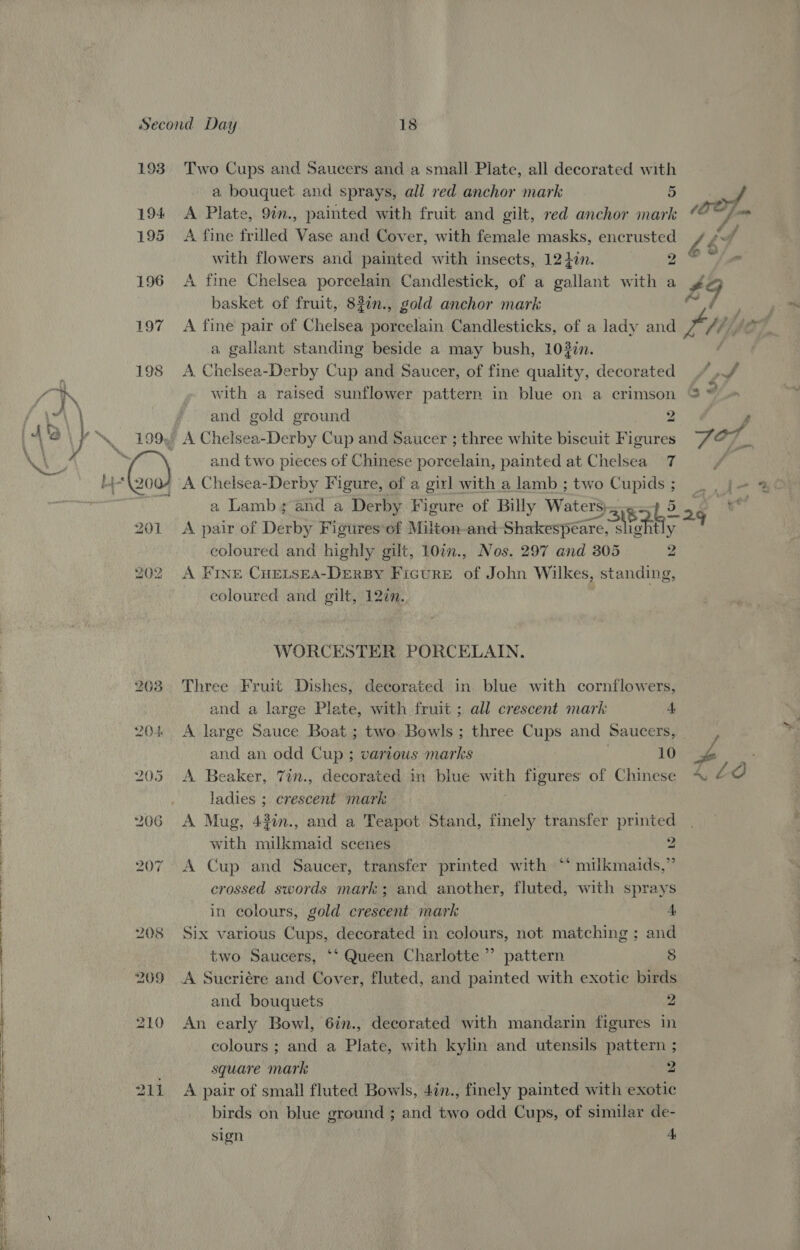 Second Day 18
193 Two Cups and Saucers and a small Plate, all decorated with
a bouquet and sprays, all red anchor mark 5
194 A Plate, 9in., painted with fruit and gilt, red anchor mark
195 A fine frilled Vase and Cover, with female masks, encrusted
with flowers and painted with insects, 12¼in. 2
196 A fine Chelsea porcelain Candlestick, of a gallant with a
basket of fruit, 8¾in., gold anchor mark
197 A fine pair of Chelsea porcelain Candlesticks, of a lady and
a gallant standing beside a may bush, 10¾in.
198 A Chelsea-Derby Cup and Saucer, of fine quality, decorated
with a raised sunflower pattern in blue on a crimson
and gold ground 2
199 A Chelsea-Derby Cup and Saucer ; three white biscuit Figures
and two pieces of Chinese porcelain, painted at Chelsea 7
200 A Chelsea-Derby Figure, of a girl with a lamb ; two Cupids ;
a Lamb ; and a Derby Figure of Billy Waters 5
201 A pair of Derby Figures of Milton and Shakespeare, slightly
coloured and highly gilt, 10in., Nos. 297 and 305 2
202 A FINE CHELSEA-DERBY FIGURE of John Wilkes, standing,
coloured and gilt, 12in.
WORCESTER PORCELAIN.
203 Three Fruit Dishes, decorated in blue with cornflowers,
and a large Plate, with fruit ; all crescent mark 4
204 A large Sauce Boat ; two Bowls ; three Cups and Saucers,
and an odd Cup ; various marks 10
205 A Beaker, 7in., decorated in blue with figures of Chinese
ladies ; crescent mark
206 A Mug, 4¾in., and a Teapot Stand, finely transfer printed
with milkmaid scenes 2
207 A Cup and Saucer, transfer printed with “ milkmaids,”
crossed swords mark ; and another, fluted, with sprays
in colours, gold crescent mark 4
208 Six various Cups, decorated in colours, not matching ; and
two Saucers, “ Queen Charlotte ” pattern 8
209 A Sucriére and Cover, fluted, and painted with exotic birds
and bouquets 2
210 An early Bowl, 6in., decorated with mandarin figures in
colours ; and a Plate, with kylin and utensils pattern ;
square mark 2
211 A pair of small fluted Bowls, 4in., finely painted with exotic
birds on blue ground ; and two odd Cups, of similar de-
sign 4